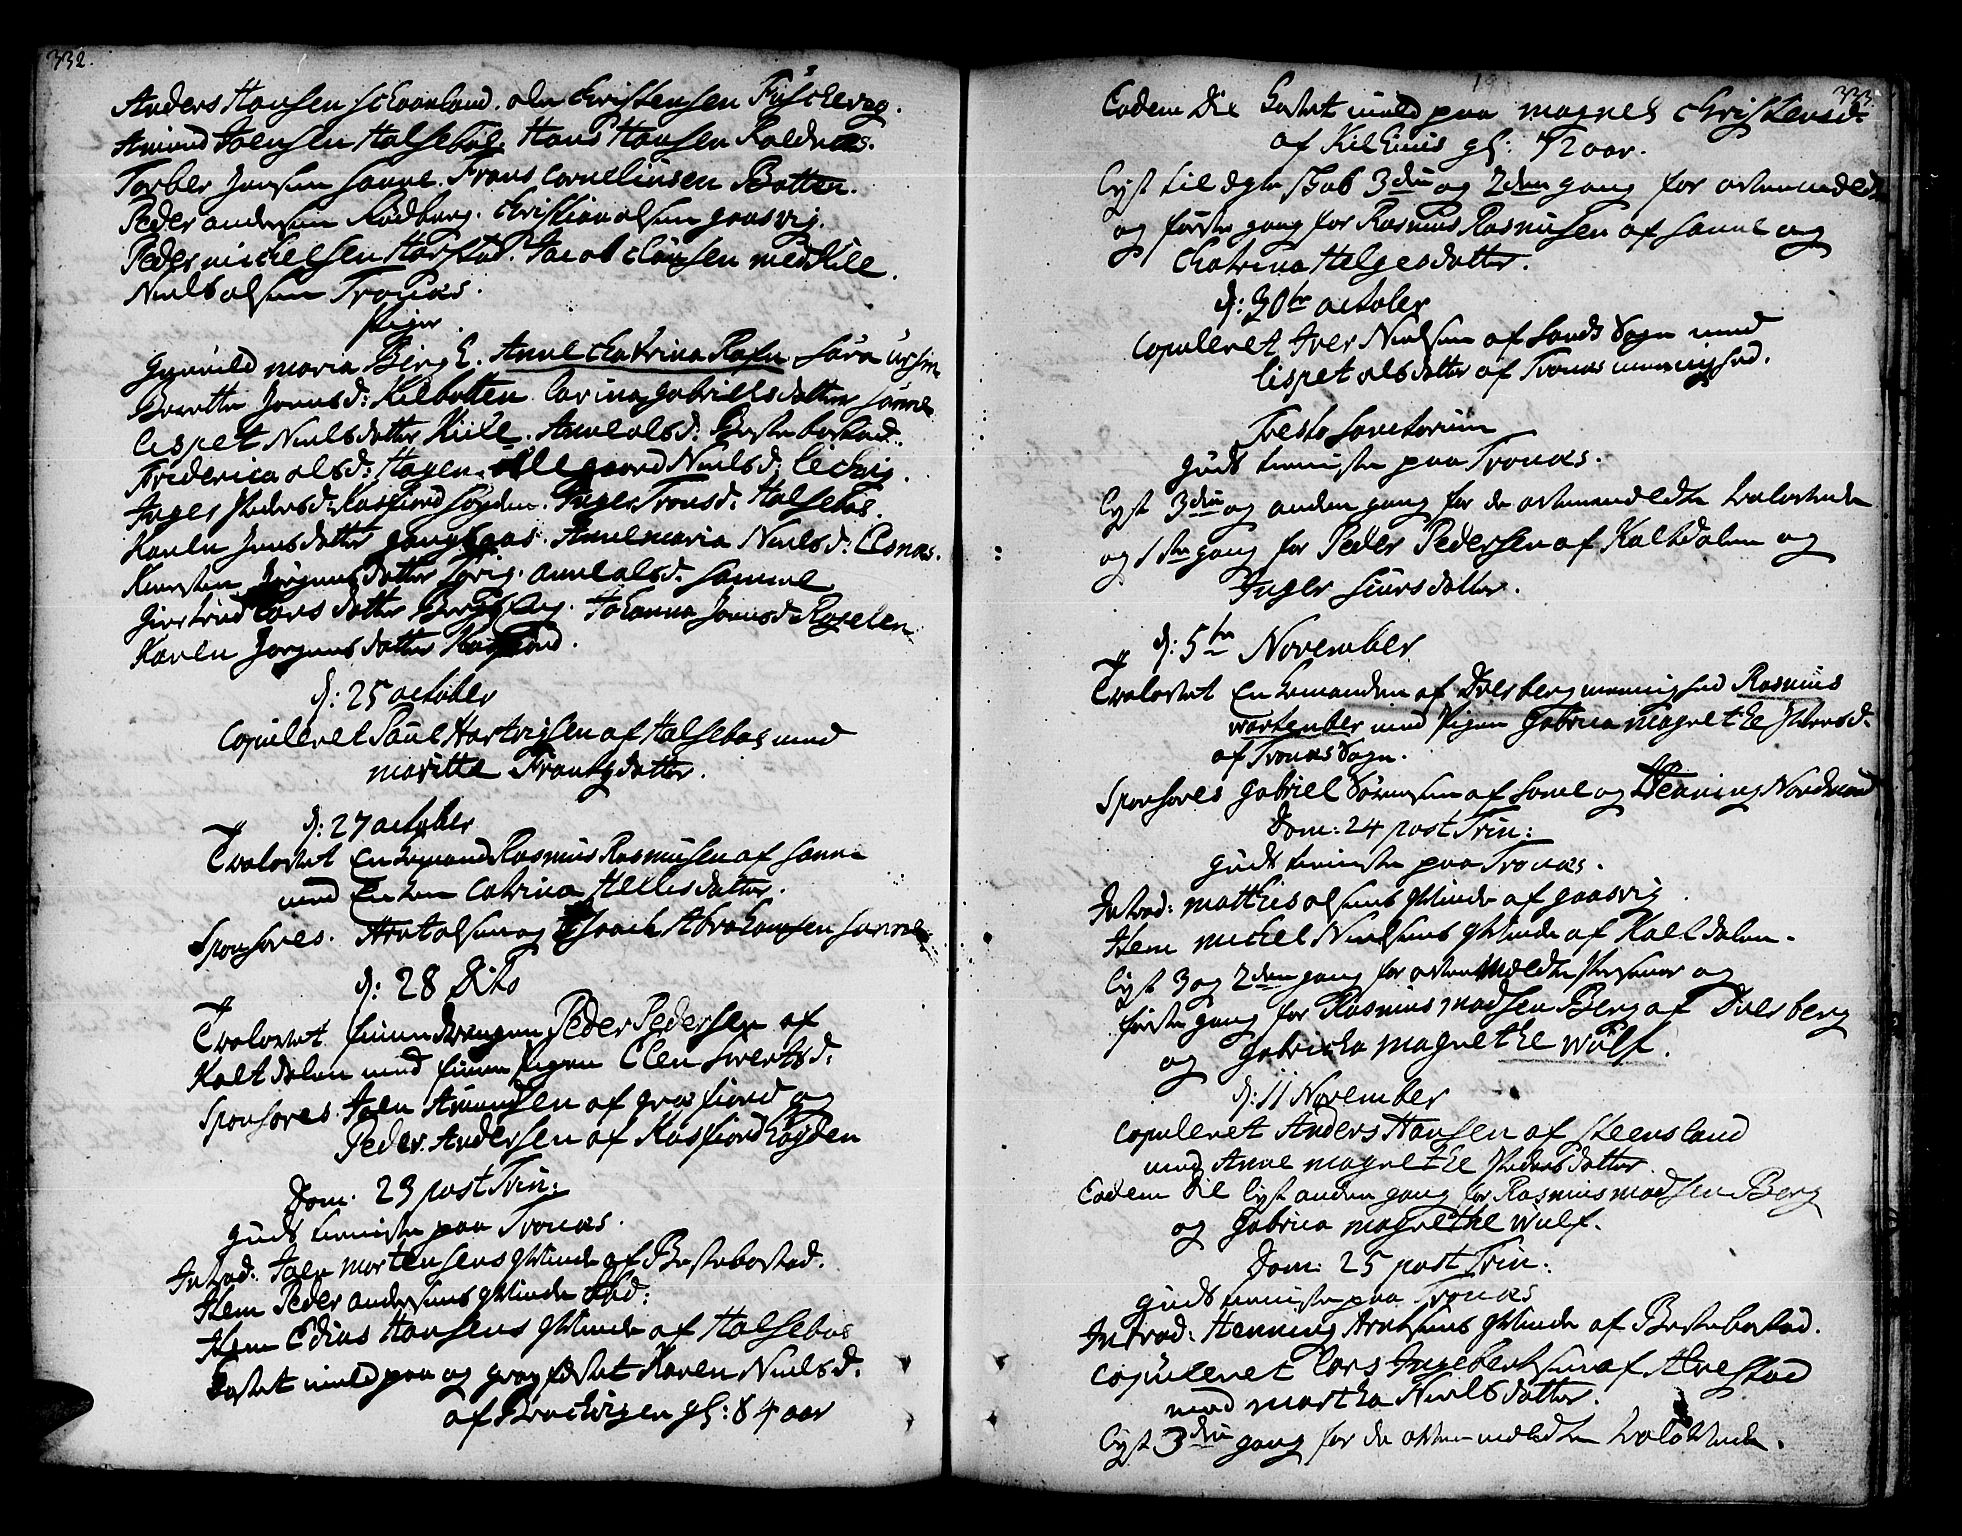 332.
Anders Hansen Schoanland. ole Christensen Fuschevog.
Amund Joensen Halsebøe. Hans Hansen Roldnæs.
Torber Jensen Sanne. Frans Corneliusen Botten.
Peder andersen Rødberg. Christian olsen gaasvig.
Peder michelsen Harstad. Jacob Clausen
Niels olsen Tronæs.
Piger.
gunnild maria Bergh. Anne Chatrina Rafn Sara
Beritte Jonsd: Kilbotten Carina gabrielsdatter Sanne
Lispet Nielsdatter Kiile. Anne olsd: Bestebostad.
Friderica olsd: Hagen. Nielsd:
Inger Pedersd: Kasfiord Inger Tronsd: Halsebøe.
Karen Jensdatter gangsaas. Anne maria Nielsd: Elsnæs.
Kiersten Jørgensdatter Sørvig. anne olsd. Sanne
giertrud Larsdatter Johanna Jonsd:
Karen Jørgensdatter Kasfiord.
d: 25 october
Copuleret Paul Hartvigsen af Halsebøe med
maritte Frantzdatter.
d: 27 october
Trolovet Enkemand Rasmus Rasmusen af Sanne
med Enken Catrina Hellesdatter.
Sponsores. Arnt olsen og Isaach Abrahamsen Sanne
d: 28 Dito
Trolovet finnedrengen Peder Pedersen af
Kaltdalen med finnepigen Elen Siversd:
Sponsores. Joen Amundsen af grasfiord og
Peder Andersen af Kasfiord
Dom. 23 post Trin:
guds tienniste paa Tronæs.
Introd: Joen mortensens qvinde af Bestebostad.
Item Peder andersens qvinde ibid:
Item Edias Hansens qvinde af Halsebøe
Kastet muld paa og gravfæstet Karen Nielsd.
af Brochvigen gl: 84 aar
333.
Eodem Die Kastet muld paa magnel Christensd:
af Kilhuus gl: 72 aar.
Lyst til ægteskab 3die og 2den gang for
og første gang for Rasmus Rasmusen af Sanne og
Chatrina Helgesdatter.
d: 30te october
Copuleret Iver Nielsen af Sands Sogn med
Lispet olsdatter af Tronæs meenighed.
Festo Sanctorum
guds tienniste paa Tronæs.
Lyst 3die og anden gang for de ovenmeldte trolovede
og 1ste gang for Peder Pedersen af Kaltdalen og
Inger Siursdatter.
d: 5te November
Trolovet Enkemanden af Dverberg meenighed Rasmus
med Pigen gabrica magrethe Iversd.
af Tronæs Sogn.
Sponsores gabriel Sørensen af Sanne og Henning Nordmand
Dom: 24 post Trin:
guds tienniste paa Tronæs.
Introd: matthis olsens qvinde af gaasvig.
Item michel Nielsens qvinde af Kaltdalen.
Lyst 3 og 2den gang for ovenmældte Personer og
første gang for Rasmus madsen Berg af Dverberg
og gabricka magrethe Wulf.
d: 11 November
Copuleret Anders Hansen af Steensland
med Anne magrethe Pedersdatter.
Eodem Die Lyst anden gang for Rasmus madsen Berg
og gabrica magrethe Wulf.
Dom: 25 post Trin:
guds tienniste paa Tronæs
Introd: Henning Arntsens qvinde af Bestebostad.
Copuleret Lars Ingebertsen af Alvestad
med martha Nielsdatter.
Lyst 3die gang for de ovenmeldte trolovede.